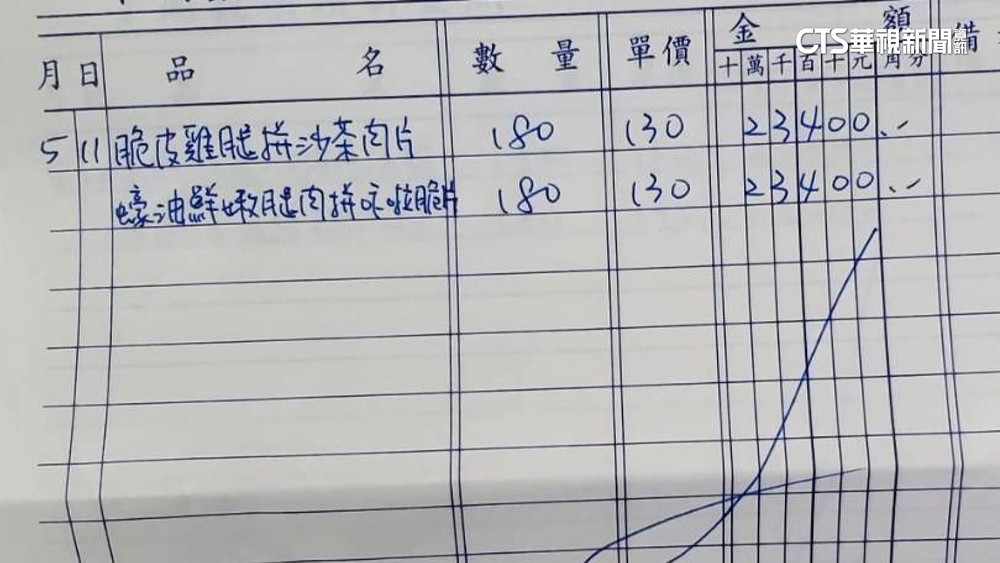 CTS華視新聞資訊
金 額
月 日 品 名 數 量 單價 十 萬 千 百 十 元 角 分 備
5 11 脆皮雞腿拼沙茶肉片 180 130 23400.-
蠔油鮮嫩腿肉拼咔啦脆片 180 130 23400.-